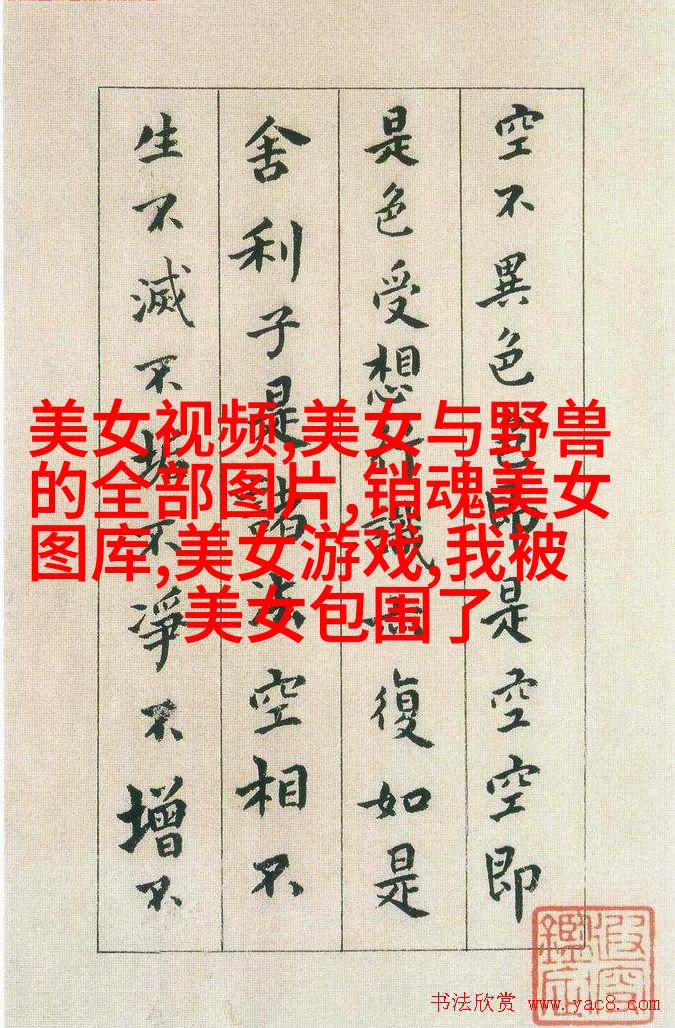 空不異色色即是空空即
是色受想行識亦復如是
舍利子是諸法空相不
生不滅不垢不淨不增不
美女视频,美女与野兽
的全部图片,销魂美女
图库,美女游戏,我被
美女包围了
书法欣赏 www.yac8.com